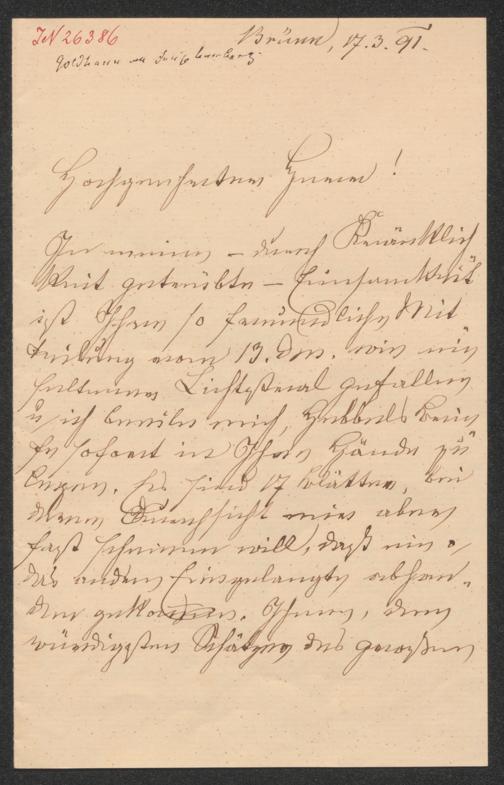 IN 26386
Goldhann an
Brünn, 17.3.91.
Hochgeehrter Herr!
In meine – durch Kränklich
keit getrübte – Einsamkeit
ist Ihre so freundliche Mit
teilung vom 13. ds. wie ein
seltener Lichtstral gefallen
u. ich beeile mich, Hebbels Brie
fe sofort in Ihre Hände zu
legen. Es sind 17 Blätter, bei
deren Durchsicht mir aber
fast scheinen will, daß ein o/
das andere Eingelangte abhan-
den gekommen. Ihnen, dem
würdigsten Schätzer des großen